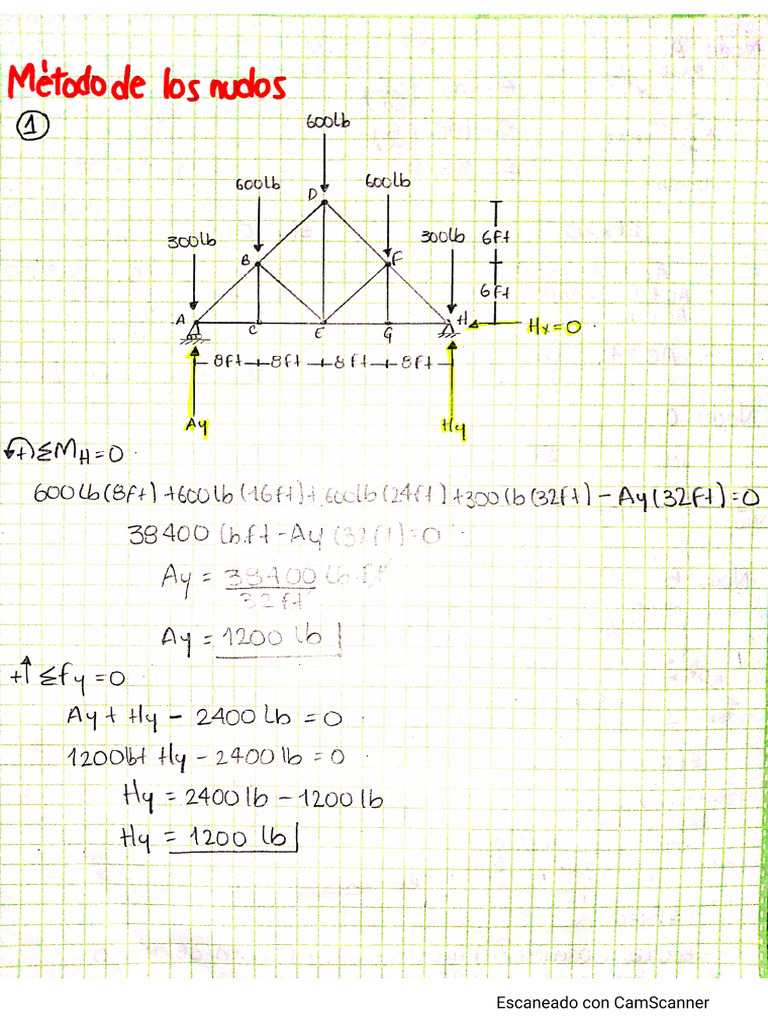 Método de los nudos
1
600lb
600lb
600lb
D
300lb
300lb
6ft
B
F
6ft
A
C
E
G
H
Hx=0
8ft
8ft
8ft
8ft
Ay
Hy
+) ΣMH=0
600lb(8ft)+600lb(16ft)+600lb(24ft)+300lb(32ft)-Ay(32ft)=0
38400 lb.ft-Ay(32ft)=0
Ay = 38400 lb.ft
32ft
Ay = 1200 lb
+↑ Σfy=0
Ay + Hy - 2400lb = 0
1200lb+ Hy - 2400lb = 0
Hy = 2400lb - 1200lb
Hy = 1200 lb
Escaneado con CamScanner